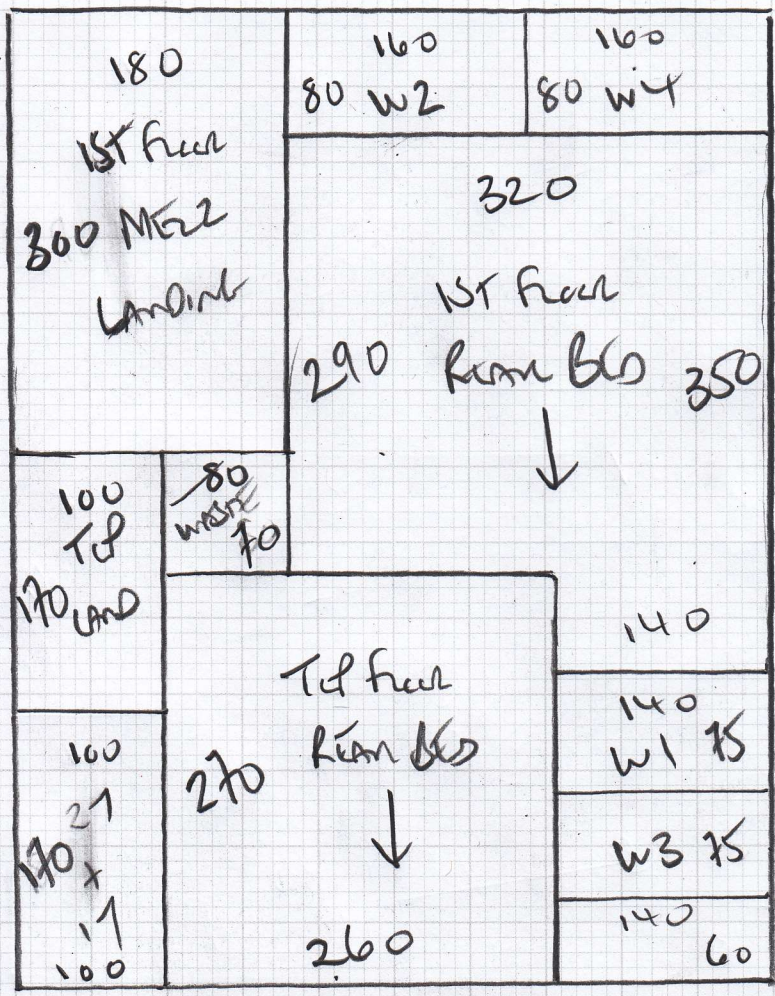 180
1ST FLOOR
300 MEZZ
LANDING
160
80 W2
160
80 W4
320
1ST FLOOR
290 REAR BED 350
140
100
TOP
170 LAND
80
WASTE
70
TOP FLOOR
REAR BED
270
260
100
27
170 x
17
100
140
W1 75
W3 75
140
60